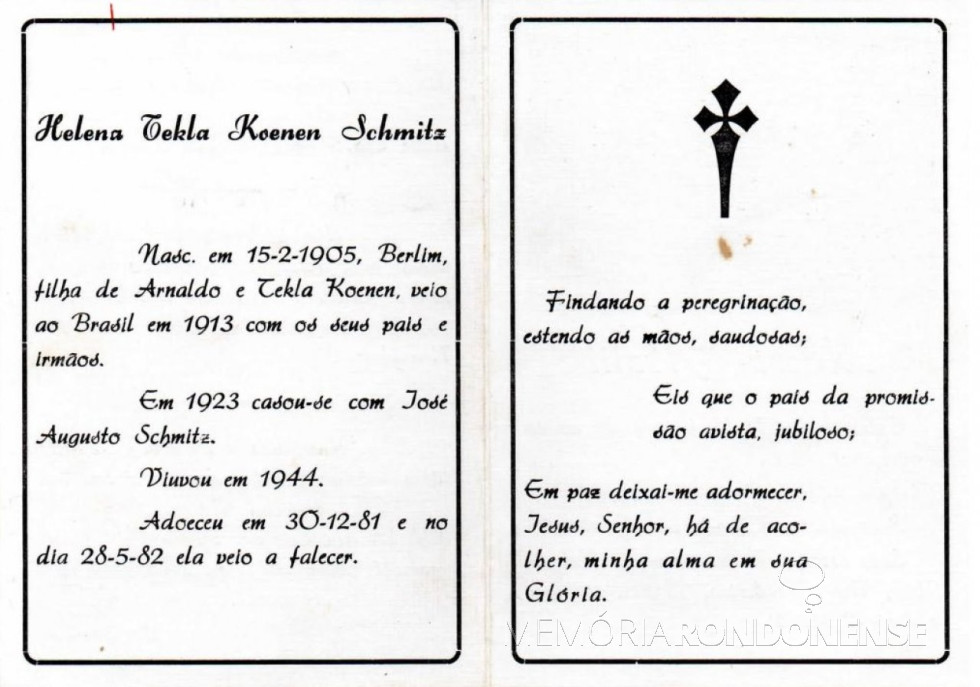 Helena Tekla Koenen Schmitz
Nasc. em 15-2-1905, Berlim,
filha de Arnaldo e Tekla Koenen, veio
ao Brasil em 1913 com os seus pais e
irmãos.
Em 1923 casou-se com José
Augusto Schmitz.
Viuvou em 1944.
Adoeceu em 30-12-81 e no
dia 28-5-82 ela veio a falecer.
Findando a peregrinação,
estendo as mãos, saudosas;
Eis que o pais da promis-
são avista, jubiloso;
Em paz deixai-me adormecer,
Jesus, Senhor, há de aco-
lher, minha alma em sua
Glória.
MEMÓRIA RONDONENSE